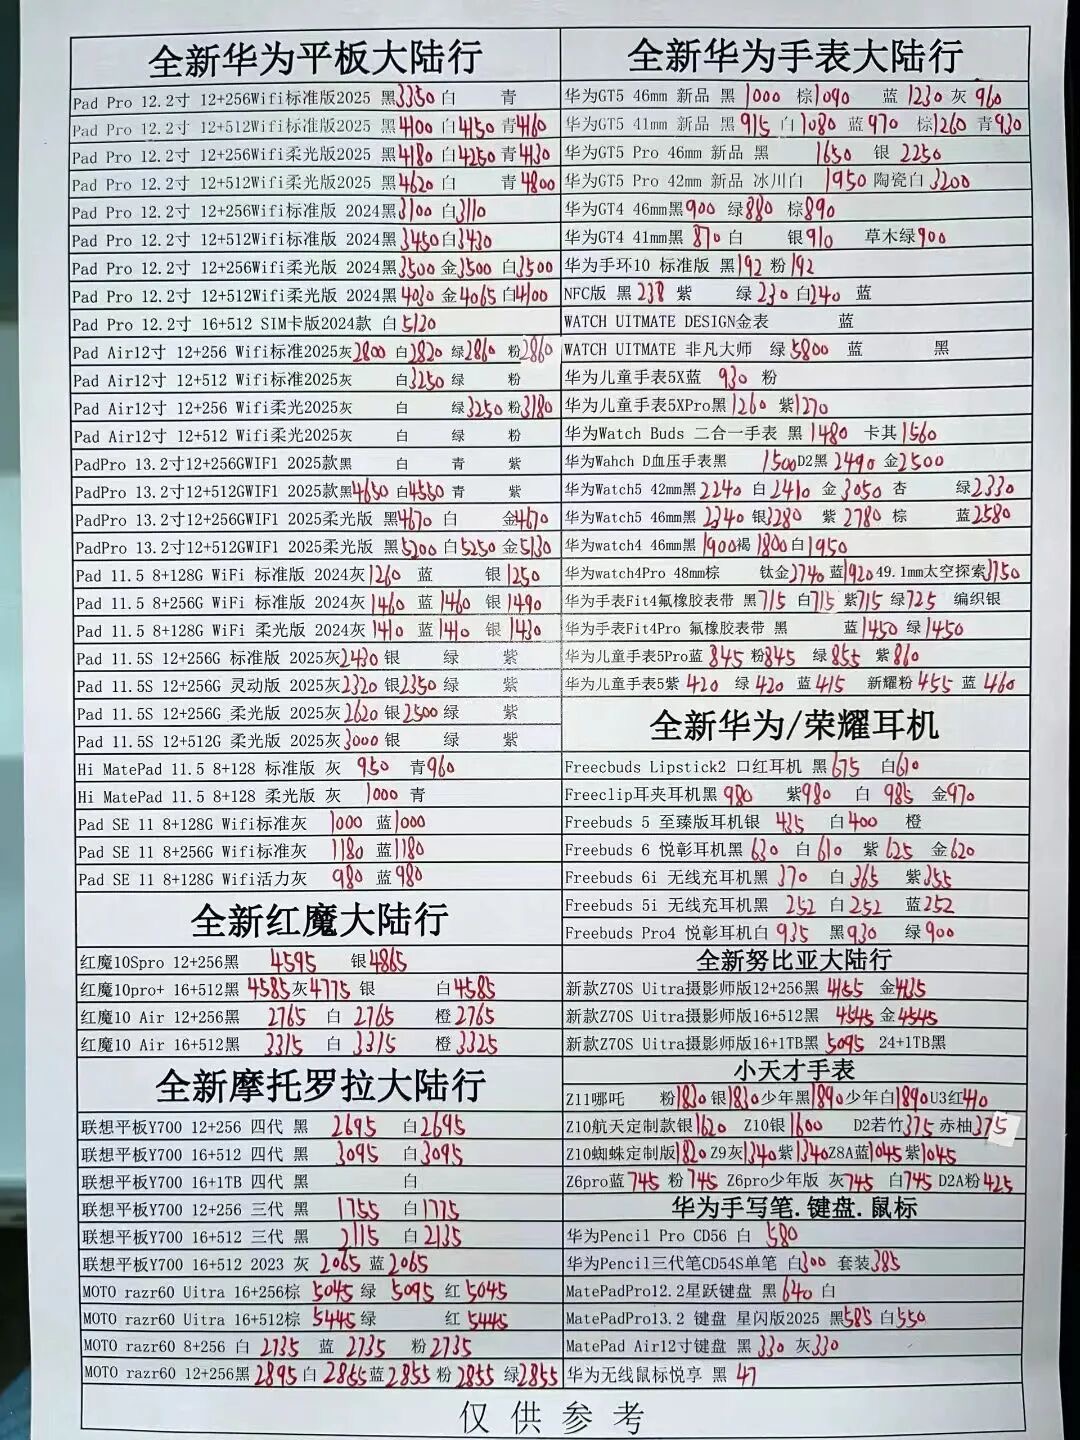 全新华为平板大陆行
Pad Pro 12.2寸 12+256Wifi标准版2025 黑3350 白 青
Pad Pro 12.2寸 12+512Wifi标准版2025 黑4100 白4150 青4160
Pad Pro 12.2寸 12+256Wifi柔光版2025 黑4180 白4250 青4130
Pad Pro 12.2寸 12+512Wifi柔光版2025 黑4620 白 青4800
Pad Pro 12.2寸 12+256Wifi标准版 2024黑3100 白3110
Pad Pro 12.2寸 12+512Wifi标准版 2024黑3450 白3430
Pad Pro 12.2寸 12+256Wifi柔光版 2024黑3500 金3500 白3500
Pad Pro 12.2寸 12+512Wifi柔光版 2024黑4030 金4065 白4100
Pad Pro 12.2寸 16+512 SIM卡版2024款 白5120
Pad Air12寸 12+256 Wifi标准2025灰2800 白2820 绿2860 粉2860
Pad Air12寸 12+512 Wifi标准2025灰 白3250 绿 粉
Pad Air12寸 12+256 Wifi柔光2025灰 白 绿3250 粉3180
Pad Air12寸 12+512 Wifi柔光2025灰 白 绿 粉
PadPro 13.2寸12+256GWIF1 2025款黑 白 青 紫
PadPro 13.2寸12+512GWIF1 2025款黑4650 白4560 青 紫
PadPro 13.2寸12+256GWIF1 2025柔光版 黑4670 白 金4670
PadPro 13.2寸12+512GWIF1 2025柔光版 黑5200 白5250 金5130
Pad 11.5 8+128G WiFi 标准版 2024灰1260 蓝 银1250
Pad 11.5 8+256G WiFi 标准版 2024灰1460 蓝1460 银1490
Pad 11.5 8+128G WiFi 柔光版 2024灰1410 蓝1410 银1430
Pad 11.5S 12+256G 标准版 2025灰2430 银 绿 紫
Pad 11.5S 12+256G 灵动版 2025灰2320 银2350 绿 紫
Pad 11.5S 12+256G 柔光版 2025灰2620 银2500 绿 紫
Pad 11.5S 12+512G 柔光版 2025灰3000 银 绿 紫
Hi MatePad 11.5 8+128 标准版 灰 950 青960
Hi MatePad 11.5 8+128 柔光版 灰 1000 青
Pad SE 11 8+128G Wifi标准灰 1000 蓝1000
Pad SE 11 8+256G Wifi标准灰 1180 蓝1180
Pad SE 11 8+128G Wifi活力灰 980 蓝980
全新红魔大陆行
红魔10Spro 12+256黑 4595 银4865
红魔10pro+ 16+512黑 4585 灰4775 银 白4585
红魔10 Air 12+256黑 2765 白 2765 橙2765
红魔10 Air 16+512黑 3315 白 3315 橙3325
全新摩托罗拉大陆行
联想平板Y700 12+256 四代 黑 2695 白2695
联想平板Y700 16+512 四代 黑 3095 白3095
联想平板Y700 16+1TB 四代 黑 白
联想平板Y700 12+256 三代 黑 1755 白1775
联想平板Y700 16+512 三代 黑 2115 白2135
联想平板Y700 16+512 2023 灰 2065 蓝2065
MOTO razr60 Uitra 16+256棕 5045 绿 5095 红5045
MOTO razr60 Uitra 16+512棕 5445 绿 红5445
MOTO razr60 8+256 白 2735 蓝 2735 粉2735
MOTO razr60 12+256黑2895 白2865 蓝2855 粉2855 绿2855
全新华为手表大陆行
华为GT5 46mm 新品 黑 1000 棕1090 蓝 1230 灰 960
华为GT5 41mm 新品 黑915 白1080 蓝970 棕1260 青930
华为GT5 Pro 46mm 新品 黑 1650 银 2250
华为GT5 Pro 42mm 新品 冰川白 1950 陶瓷白3200
华为GT4 46mm黑900 绿880 棕890
华为GT4 41mm黑 870 白 银910 草木绿900
华为手环10 标准版 黑192 粉192
NFC版 黑238 紫 绿230 白240 蓝
WATCH UITMATE DESIGN金表 蓝
WATCH UITMATE 非凡大师 绿5800 蓝 黑
华为儿童手表5X蓝 930 粉
华为儿童手表5XPro黑1260 紫1270
华为Watch Buds 二合一手表 黑 1480 卡其1560
华为Wahch D血压手表黑 1500 D2黑 2490 金2500
华为Watch5 42mm黑2240 白2410 金3050 杏 绿2330
华为Watch5 46mm黑 2340 银3280 紫 2780 棕 蓝2580
华为watch4 46mm黑1900 褐1800 白1950
华为watch4Pro 48mm棕 钛金2740 蓝1920 49.1mm太空探索3150
华为手表Fit4氟橡胶表带 黑715 白715 紫715 绿725 编织银
华为手表Fit4Pro 氟橡胶表带 黑 蓝1450 绿1450
华为儿童手表5Pro蓝845 粉845 绿855 紫860
华为儿童手表5紫 420 绿 420 蓝 415 新耀粉455 蓝 460
全新华为/荣耀耳机
Freecbuds Lipstick2 口红耳机 黑675 白610
Freeclip耳夹耳机黑980 紫980 白 985 金970
Freebuds 5 至臻版耳机银 435 白400 橙
Freebuds 6 悦彰耳机黑 630 白610 紫 625 金620
Freebuds 6i 无线充耳机黑 370 白365 紫355
Freebuds 5i 无线充耳机黑 252 白252 蓝252
Freebuds Pro4 悦彰耳机白935 黑930 绿900
全新努比亚大陆行
新款Z70S Uitra摄影师版12+256黑 4155 金4135
新款Z70S Uitra摄影师版16+512黑 4545 金4545
新款Z70S Uitra摄影师版16+1TB黑 5095 24+1TB黑
小天才手表
Z11哪吒 粉1830 银1830 少年黑1890 少年白1890 U3红410
Z10航天定制款银1620 Z10银1600 D2若竹375 赤柚375
Z10蜘蛛定制版1820 Z9灰1340 紫1340 Z8A蓝1045 紫1045
Z6pro蓝745 粉745 Z6pro少年版 灰745 白745 D2A粉425
华为手写笔.键盘.鼠标
华为Pencil Pro CD56 白 580
华为Pencil三代笔CD54S单笔 白300 套装385
MatePadPro12.2星跃键盘 黑640 白
MatePadPro13.2 键盘 星闪版2025 黑585 白550
MatePad Air12寸键盘 黑330 灰330
华为无线鼠标悦享 黑 47
仅供参考